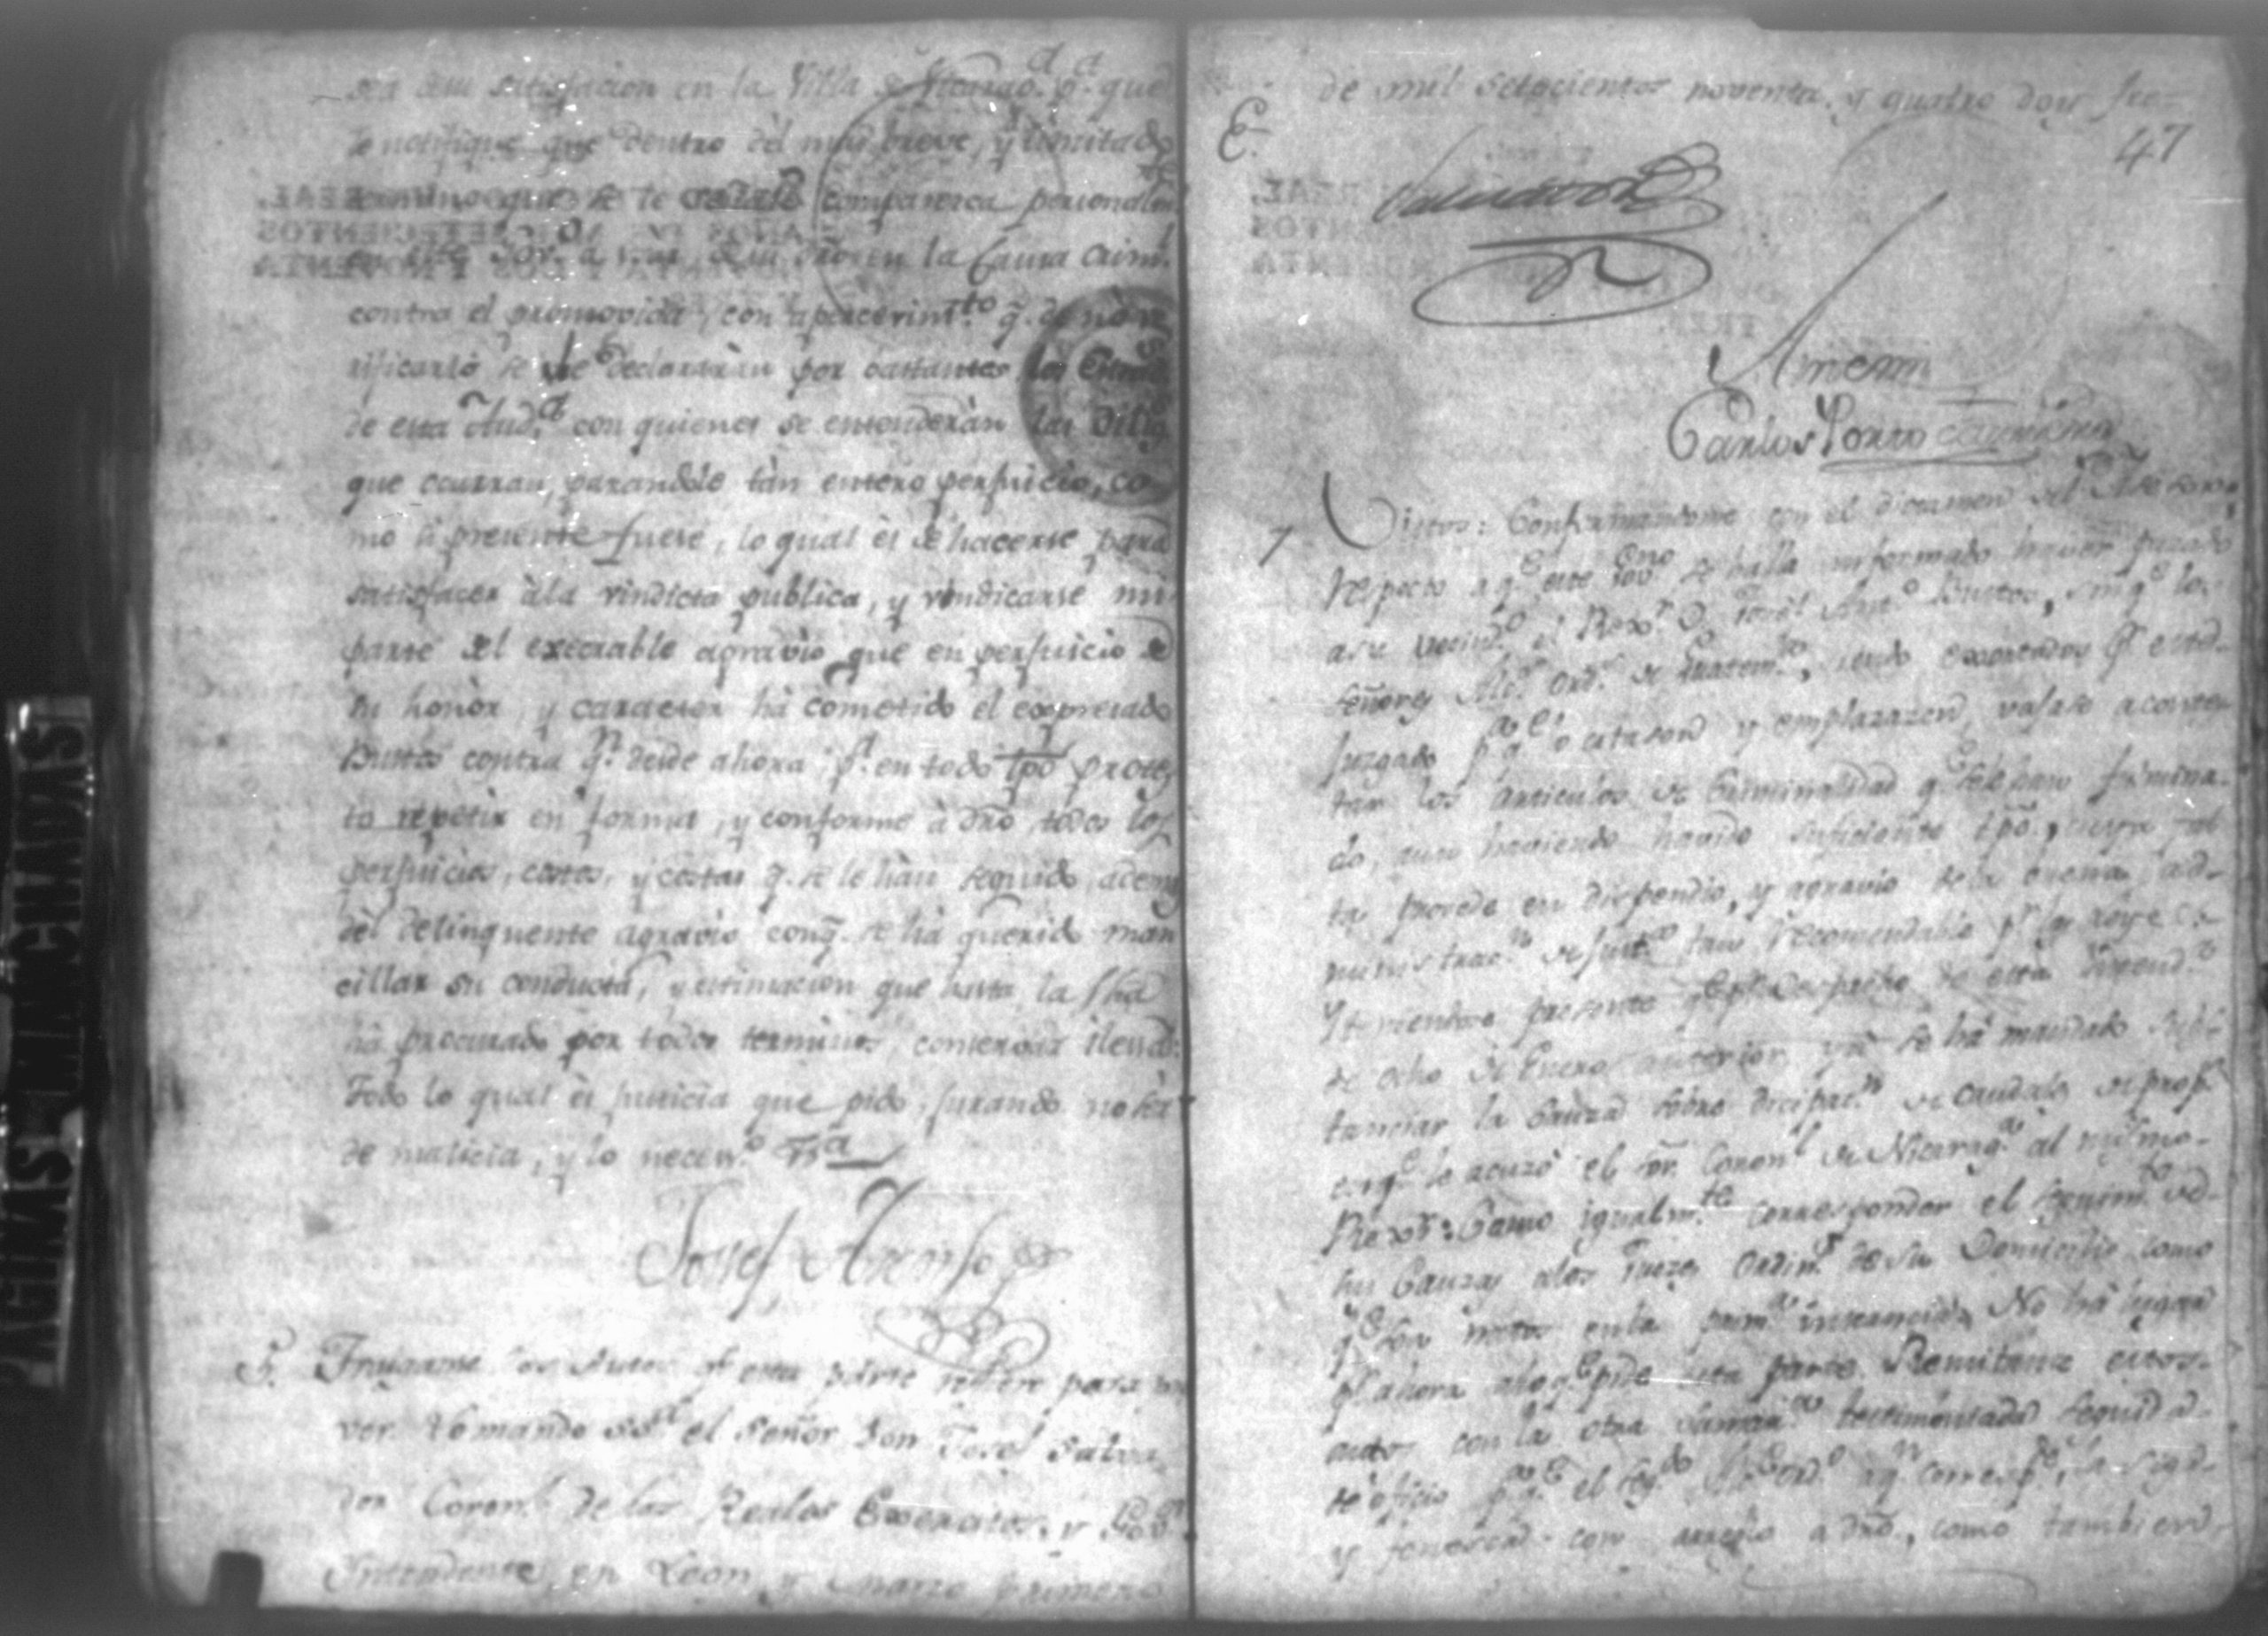 sea a su satisfacion en la Villa de pa. que
se notifique que dentro del mas breve, y limitado
termino que se le señale comparezca personalmte.
en este Gov. a usar de su dro en la Causa criml.
contra el promovida, con apercevimto. q. de no ve-
rificarlo se le declararàn por bastantes los Estrados
de esta Auda. con quienes se entenderàn las Dilig.
que ocurran, parandole tàn entero perjuicio, co-
mo si presente fuese, lo qual es de hacerse para
satisfacer à la vindicta publica, y vindicarse mi
parte del execrable agravio que en perjuicio de
su honòr, y caracter hà cometido el expresado
Bustos contra qn. desde ahora pa. en todo tpo protes-
to repetir en forma, y conforme à dro todos los
perjuicios, costos, y costas q. se le hàn seguido, ademas
del delinquente agravio conq. se hà querido man-
cillar su conducta, y estimacion que hasta la fha
hà procurado por todos terminos, conservar ilesa:
Todo lo qual es justicia que pido, jurando no hà
de malicia, y lo neceso. Va
Josef Alonso
S. Traiganse los Autos qe esta parte refiere para pro-
ver. Lo mandó SSa. el Señor Don Josef Salva-
dor Coronl. de los Reales Exercitos, y Govr.
Intendente en Leon y Marzo primero
PAGINAS MANCHADAS
de mil setecientos noventa, y quatro doy fee=
47
E.
Salvador
Ante mi
Carlos
7 Vistos: Conformandome con el dictamen del Asesor,
respecto a qe. este Govno. se halla informado haver pasado
a su vecindo. el Rexor. D. Josef Anto. Bustos, sin qe. los
señores Alcs. Ords. de Guatema., siendo exortados pr. este
Juzgado pa. qe. lo citasen y emplazazen, vajase a contes-
tar los articulos de Criminalidad qe. se le han fulmina-
do, aun haviendo havido suficiente tpo., cuya fal-
ta procede en dispendio, y agravio de la buena ad-
ministracn. de Justa. tan recomendable pr. las Leyes: Y
teniendose presente qe. pr. Despacho de esta Intenda.
de ocho de Enero anterior, ya se ha mandado subs-
tanciar la Cauza sobre disipacn. de caudales de prop.
conqe. le acuzó el Sor. Coronl. de Nicaraga. al mismo
Rexor.: Como igualmte. corresponder el seguimto. de
sus Cauzas a los Juezes Ordins. de su Domicilio como
qe. son natos en la prima. instancia. No ha lugar
pr. ahora a lo qe. pide esta parte. Remitanse estos
autos con la otra Sumara. testimoniada seguida
de oficio pa. qe. el Sego. Alce. Ordo. a qn. corresponde, la siga
y fenesca con arreglo a dro., como tambien